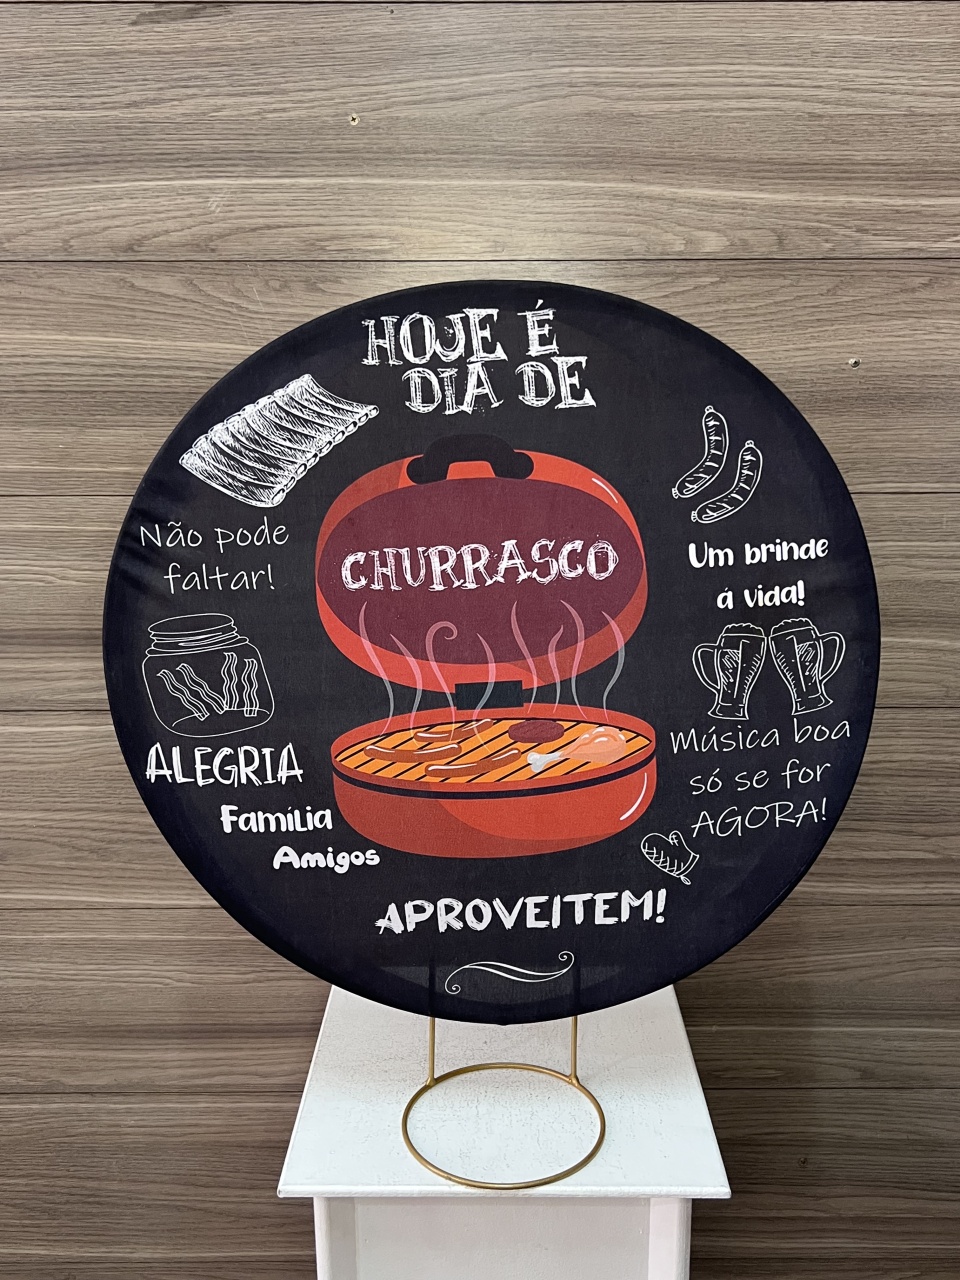 HOJE É
DIA DE
CHURRASCO
Não pode
faltar!
ALEGRIA
Família
Amigos
Um brinde
á vida!
Música boa
só se for
AGORA!
APROVEITEM!